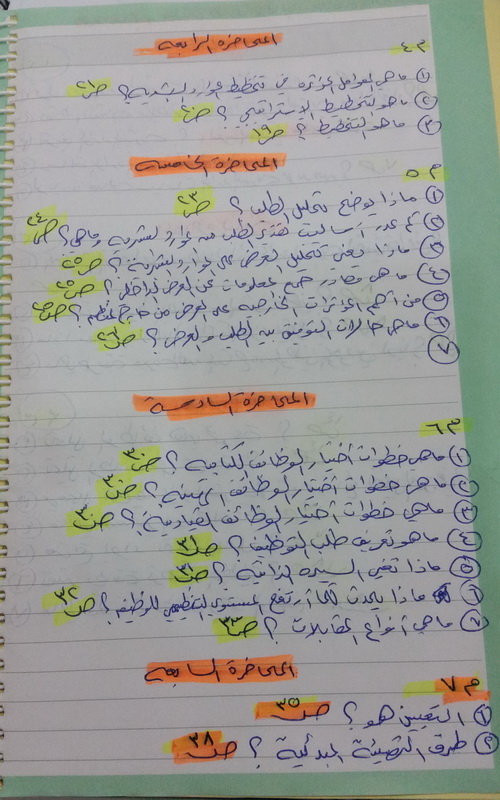 المحاضرة الرابعة
م٤
① ماهي العوامل المؤثرة في تخطيط الموارد البشرية؟ ص٢١
② ماهو التخطيط الإستراتيجي؟ ص٢٠
③ ماهو التخطيط؟ ص١٩
المحاضرة الخامسة
م٥
① ماذا يوضح تحليل الطلب؟ ص٢٣
② كم عدد أساليب تقدير الطلب من الموارد البشرية وماهي؟ ص٢٤
③ ماذا يعني تحليل العرض على الموارد البشرية؟ ص٢٥
④ ماهي مصادر جمع المعلومات عن العرض الداخلي؟ ص٢٥
⑤ من أهم المؤثرات الخارجية على العرض من خارج المنظمة؟
⑥ ماهي حالات التوفيق بين الطلب والعرض؟ ص٢٦
⑦
المحاضرة السادسة
م٦
① ماهي خطوات أختيار الوظائف الكتابية؟ ص٣٠
② ماهي خطوات أختيار الوظائف المهنية؟ ص٣٠
③ ماهي خطوات أختيار الوظائف القيادية؟
④ ماهو تعريف طلب التوظيف؟ ص٣١
⑤ ماذا تعني السيرة الذاتية؟ ص٣١
⑥ ماذا يحدث كلما أرتفع المستوى التنظيمي للوظيفة؟ ص٣٢
⑦ ماهي أنواع المقابلات؟ ص٣٣
المحاضرة السابعة
م٧
① التعيين هو؟ ص٣٥
② طرق التهيئة المبدئية؟ ص٣٨